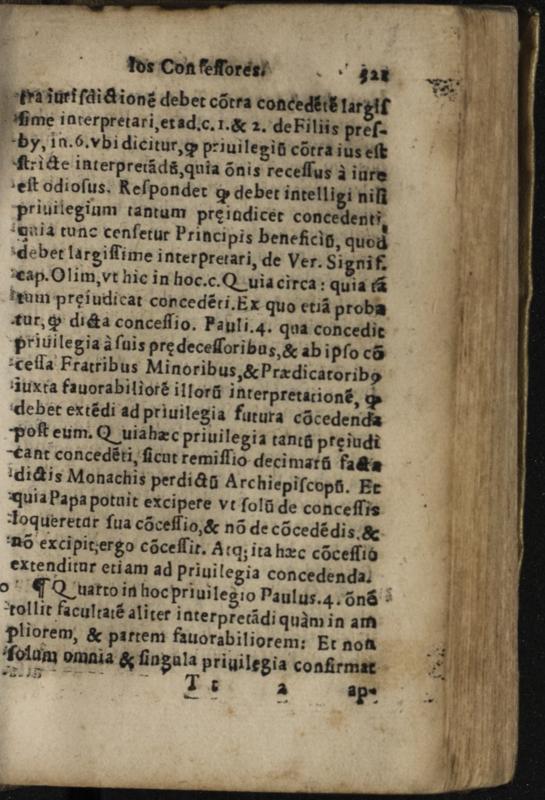 los Confessores. 321
tra iurisdictionē debet cōtra concedētē largis
sime interpretari, et ad.c.1.& 2. de Filiis pres-
by, in.6.vbi dicitur, ꝙ priuilegiū cōtra ius est
stricte interpretādū, quia ōnis recessus à iure
est odiosus. Respondet ꝙ debet intelligi nisi
priuilegium tantum pręiudicet concedenti,
quia tunc censetur Principis beneficiū, quod
debet largissime interpretari, de Ver. Signif.
cap. Olim, vt hic in hoc.c. Quia circa: quia tā
tum pręiudicat concedēti. Ex quo etiā proba
tur, ꝙ dicta concessio. Pauli.4. qua concedit
priuilegia à suis prędecessoribus, & ab ipso cō
cessa Fratribus Minoribus, & Prædicatoribꝰ
iuxta fauorabiliorē illorū interpretationē, ꝙ
debet extēdi ad priuilegia futura cōcedenda
post eum. Quia hæc priuilegia tantū pręiudi
cant concedēti, sicut remissio decimarū facta
dictis Monachis per dictū Archiepiscopū. Et
quia Papa potuit excipere vt solū de concessis
loqueretur sua cōcessio, & nō de cōcedēdis, &
nō excipit; ergo cōcessit. Atq; ita hæc cōcessio
extenditur etiam ad priuilegia concedenda.
¶ Quarto in hoc priuilegio Paulus.4. ōnē
tollit facultatē aliter interpretādi quàm in am
pliorem, & partem fauorabiliorem: Et non
solum omnia & singula priuilegia confirmat
T t 2 ap-